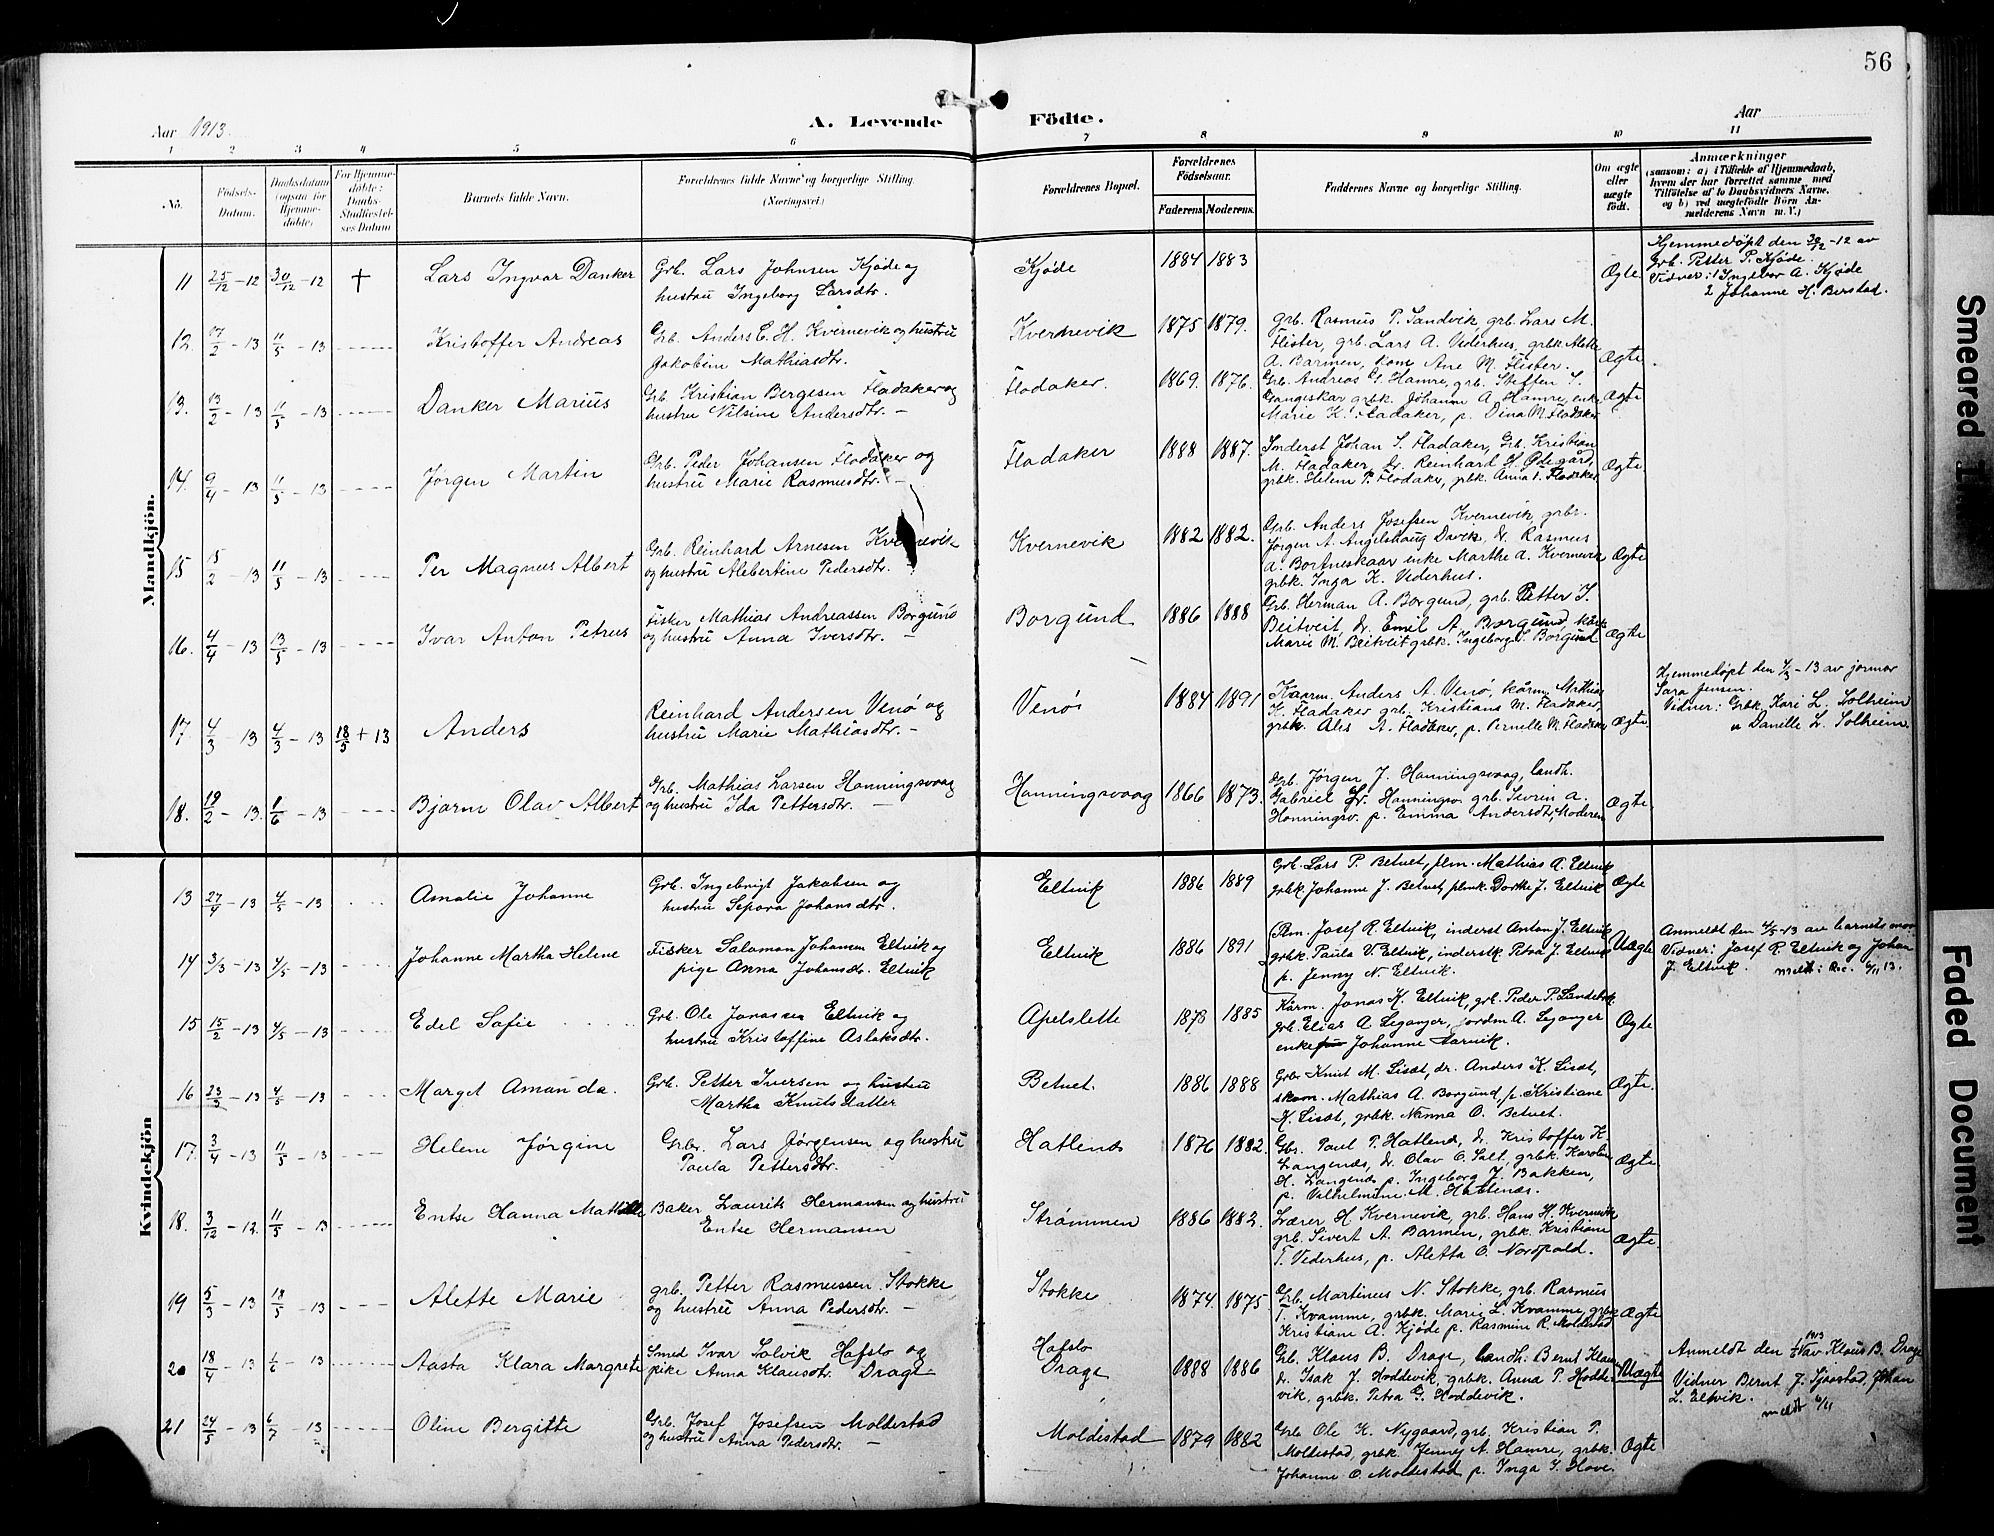 56
Aar 1913.
A. Levende Födte.
Aar
1 2 3 4 5 6 7 8 9 10 11
No.
Födsels-Datum.
Daabsdatum (ogsaa for Hjemmedöbte)
For Hjemmedöbte: Daabs-Stadfæstelses Datum
Barnets fulde Navn.
Forældrenes fulde Navne og borgerlige Stilling.
(Næringsvei.)
Forældrenes Bopæl.
Forældrenes Födselsaar.
Faderens. Moderens.
Faddernes Navne og borgerlige Stilling.
Om ægte eller uægte födt.
Anmærkninger
(saasom: a) i Tilfælde af Hjemmedaab, hvem der har forrettet samme med Tilföielse af to Daabsvidners Navne, og b) ved uægtefödte Börn Anmelderens Navn m. V.)
Mandkjön.
11 25/12 - 12 30/12 - 12 + Lars Ingvar Danker
Grb. Lars Johnsen Kjøde og
hustru Ingeborg Larsdtr.
Kjøde 1884 1883 Ægte
Hjemmedøpt den 30/12 - 12 av
Grb. Petter P. Kjøde.
Vidner: 1 Ingebor A. Kjøde
2 Johanne H. Berstad.
12. 17/2 - 13 11/5 - 13 Kristoffer Andreas
Grb. Anders E. H. Kvernevik og hustru
Jakobine Mathiasdtr.
Kvernevik 1875 1879.
Grb. Rasmus P. Sandvik, grb. Lars M.
Flister, grb. Lars A. Vederhus, grbk. Alette
A. Barmen, kone Ane M. Flister.
Ægte
13. 13/2 - 13 11/5 - 13 Danker Marius
Grb. Kristian Bergesen Fladaker og
hustru Nilsine Andersdtr. -
Fladaker. 1869. 1876.
Grb. Andreas G. Hamre, grb. Steffen S.
Gangeskar grbk. Johanne A. Hamre, enke
Marie K. Fladaker, p. Dina M. Fladaker
Ægte
14. 9/4 - 13 11/5 - 13 Jørgen Martin
Grb. Peder Johansen Fladaker og
hustru Marie Rasmusdtr. -
Fladaker 1888 1887.
Inderst Johan S. Fladaker, Grb. Kristian
M. Fladaker, dr. Reinhard H. Ødegård,
grbk. Helene P. Fladaker, grbk. Anna I. Fladaker
Ægte
15 15/2 - 13 11/5 - 13 Per Magnus Albert
Grb. Reinhard Arnesen Kvernevik
og hustru Alebertine Pedersdtr.
Kvernevik 1882 1882.
Grb. Anders Josefsen Kvernevik, grbr.
Jørgen A. Angelshaug Davik, dr. Rasmus
A. Bortneskaar enke Marthe A. Kvernevik
grbk. Inga K. Vederhus.
Ægte
16. 4/4 - 13 13/5 - 13 Ivar Anton Petrus
Fisker Mathias Andreassen Borgund
og hustru Anna Iversdtr. -
Borgund 1886 1888
Grb. Herman A. Borgund, grb. Petter S.
Beitveit dr. Emil A. Borgund,
Marie M. Beitveit grbk. Ingeborg S. Borgund
Ægte
17. 4/3 - 13 4/3 - 13 18/5 + 13 Anders
Reinhard Andersen Venø og
hustru Marie Mathiasdtr. -
Venø 1884 1891
Kaarm. Anders A. Venø, kårm. Mathias
K. Fladaker grb. Kristians M. Fladaker,
grbk. Alis A. Fladaker, p. Pernille M. Fladaker
Ægte
Hjemmedøpt den 4/3 - 13 av jormor
Sara Jensen.
Vidner: Grbk. Kari L. Solheim
" Danille L. Solheim
18. 19/2 - 13. 1/6 - 13 Bjarne Olav Albert
Grb. Mathias Larsen Honningsvaag
og hustru Ida Pettersdtr. -
Honningsvaag 1866 1873.
Grb. Jørgen J. Honningsvaag, landh.
Gabriel Dr. Honningsv. grb. Sevrin A.
Honningsv. p. Emma Andersdtr, Moderen
Ægte.
Kvindekjön
13 27/4 - 13 4/5 - 13 Amalie Johanne
Grb. Ingebrigt Jakobsen og
hustru Sepora Johansdtr.
Eltvik 1886 1889
Grb. Lars P. Betvet, plm. Mathias A. Eltvik
grbk. Johanne J. Betvet, plmk. Dorthe J. Eltvik
Ægte
14 3/3 - 13 4/5 - 13 Johanne Martha Helene
Fisker Salomon Johansen Eltvik og
pige Anna Johansdtr. Eltvik
Eltvik 1886 1891
Plm. Josef R. Eltvik, inderst Anton J. Eltvik
grbk. Paula V. Eltvik, inderstk. Petra J. Eltvik
p. Jenny N. Eltvik.
Uægte
Anmeldt den 4/5 - 13 av barnets mor
Vidner: Josef R. Eltvik og Johan
J. Eltvik. meldt: Rec. 6/11 13.
15 15/2 - 13 4/5 - 13 Edel Sofie
Grb. Ole Jonassen Eltvik og
hustru Kristoffine Aslaksdtr.
Apelslette 1878 1885
Kårm. Jonas K. Eltvik, grb. Peder P. Sandvik
grb. Elias A. Leganger, jordm A. Leganger
enkefru Johanne Aarvik.
Ægte
16 23/3 - 13 4/5 - 13 Marget Amanda.
Grb. Petter Iversen og hustru
Martha Knuts datter
Betvet. 1886 1888
Grb. Knut M. Liset, dr. Anders K. Liset,
skom. Mathias A. Borgund, p. Kristiane
K. Liset, grbk. Nanna O. Betvet.
Ægte.
17. 3/4 - 13 11/5 - 13 Helene Jørgine
Grb. Lars Jørgensen og hustru
Paula Pettersdtr.
Hatlenes 1876 1882.
Gbr. Paul P. Hatlenes, dr. Kristoffer K.
Langenes, dr. Olav O. Salt, grbk. Karoline
H. Langenes p. Ingeborg J. Bakken,
p. Vilhelmine M. Hatlenes.
Ægte.
18. 3/12 - 12. 11/5 - 13 Entse Hanna Mathilde
Baker Laurits Hermansen og hustru
Entse Hermansen
Strømmen 1886 1882.
Lærer H Kvernevik, grb. Hans H. Kvernevik
grb. Sivert A. Barmen, grbk. Kristiane
T. Vederhus, p. Aletta O. Nordpold.
Ægte.
19 5/3 - 13 18/5 - 13 Alette Marie
grb. Petter Rasmussen Stokke
og hustru Anna Pedersdtr. -
Stokke 1874. 1875
Grb. Martinus N. Stokke, grb. Rasmus
T. Kvamme, grbk. Marie L. Kvamme, grbk
Kristiane A. Kjøde p. Rasmine R. Moldestad
Ægte
20 18/4 - 13 1/6 - 13 Aasta Klara Margrete
Smed Ivar Solvik Hafslo og
pike Anna Klausdtr. Drage
Hafslo
Drage 1888 1886
Grb. Klaus B. Drage, landh. Bernt Klausen
dr Isak J. Hoddevik, grbk. Anna P. Hodde-
vik, grbk. Petra G. Hoddevik.
Uægte
Anmeldt den 1/6 1913 av Klaus B. Drage
Vidner Bernt J. Sjaastad, Johan
L. Eltvik. meldt 6/11
21 24/5 - 13 6/7 - 13 Oline Bergitte
Grb. Josef Josefsen Moldestad
og hustru Anna Pedersdtr. -
Moldestad 1879 1882
Grb Ole K. Nygaard, grb. Kristian P.
Moldestad, grbk. Jenny A. Hamre, grbk.
Johanne O. Moldestad p. Inga I. Hove.
Ægte
Smeared
Faded Document